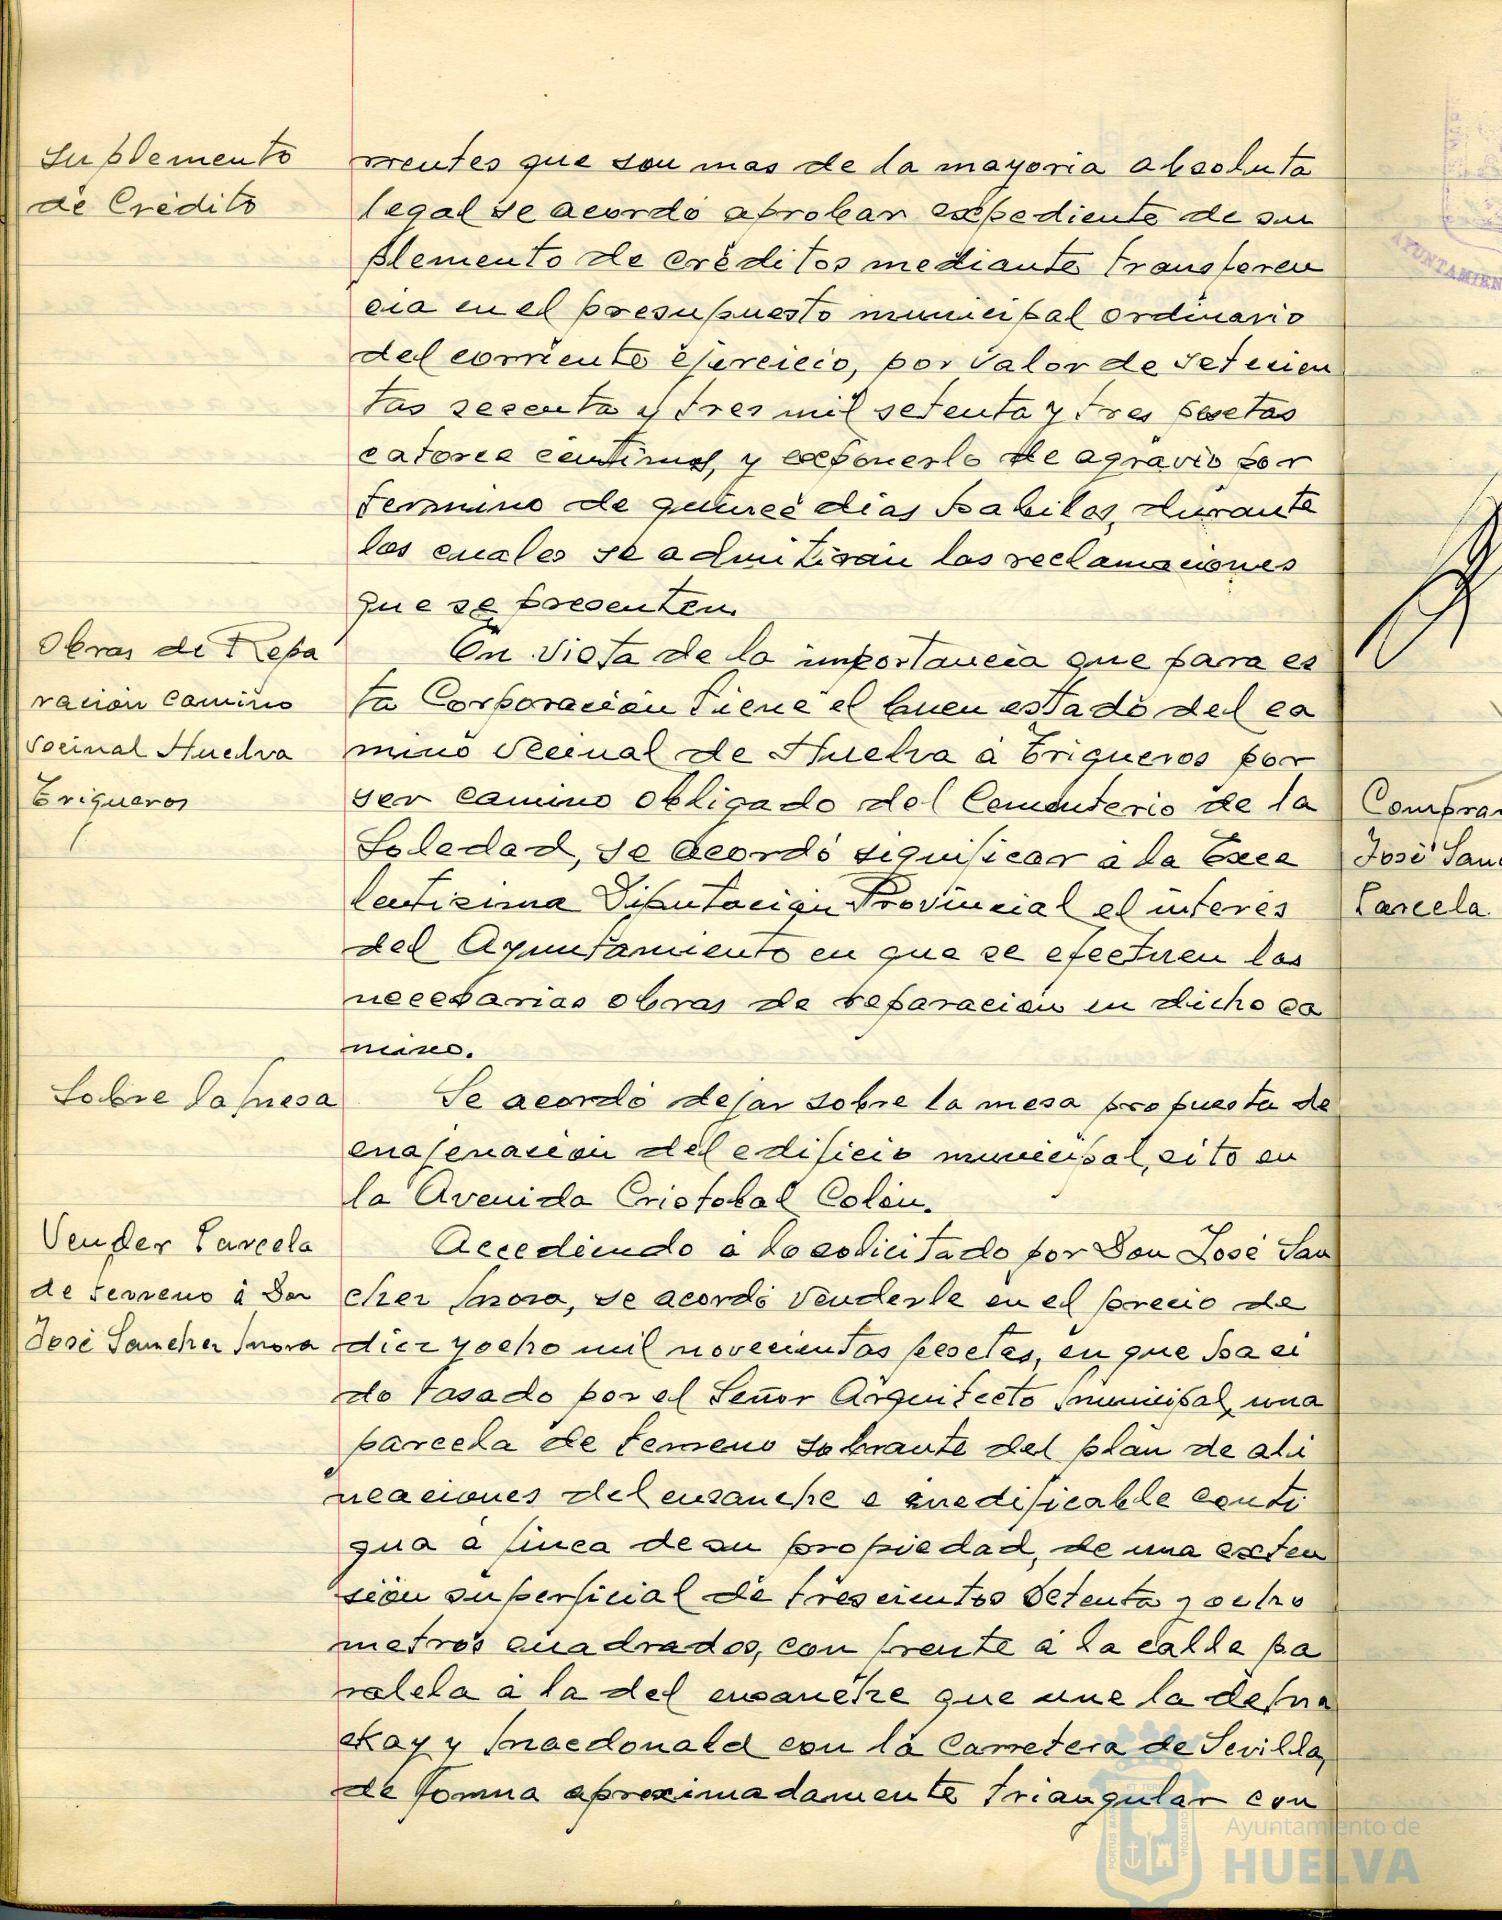 Suplemento
de Crédito
rrentes que son mas de la mayoria absoluta
legal se acordó aprobar expediente de su
plemento de créditos mediante transferen
cia en el presupuesto municipal ordinario
del corriente ejercicio, por valor de setecien
tas sesenta y tres mil setenta y tres pesetas
catorce centimos, y exponerlo de agravio por
termino de quince dias habiles, durante
los cuales se admitirán las reclamaciones
que se presenten.
Obras de Repa
ración camino
vecinal Huelva
Trigueros
En vista de la importancia que para es
ta Corporación tiene el buen estado del ca
mino vecinal de Huelva á Trigueros por
ser camino obligado del Cementerio de la
Soledad, se acordó significar á la Exce
lentisima Diputación Provincial el interés
del Ayuntamiento en que se efectuen las
necesarias obras de reparación en dicho ca
mino.
Sobre la mesa
Se acordó dejar sobre la mesa propuesta de
enajenación del edificio municipal, sito en
la Avenida Cristobal Colón.
Vender Parcela
de terreno á Don
José Sanchez Mora
Accediendo á lo solicitado por Don José San
chez Mora, se acordó venderle en el precio de
diez y ocho mil novecientas pesetas, en que ha si
do tasado por el Señor Arquitecto Municipal, una
parcela de terreno sobrante del plán de ali
neaciones del ensanche e inedificable conti
gua á finca de su propiedad, de una exten
sión superficial de trescientos setenta y ocho
metros cuadrados, con frente á la calle pa
ralela á la del ensanche que une la de Ma
ckay y Macdonald con la Carretera de Sevilla,
de forma aproximadamente triangular con
AYUNTAMIEN
Comprar
José San
Parcela.
Ayuntamiento de
HUELVA